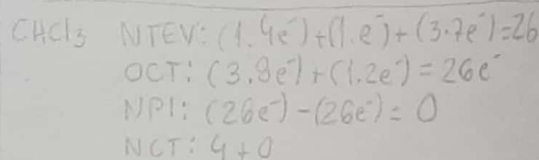 CHCl₃ NTEV: (1.4e⁻)+(1.e⁻)+(3.7e⁻)=26
OCT: (3.8e⁻)+(1.2e⁻)=26e⁻
NPI: (26e⁻)-(26e⁻)=0
NCT: 4+0